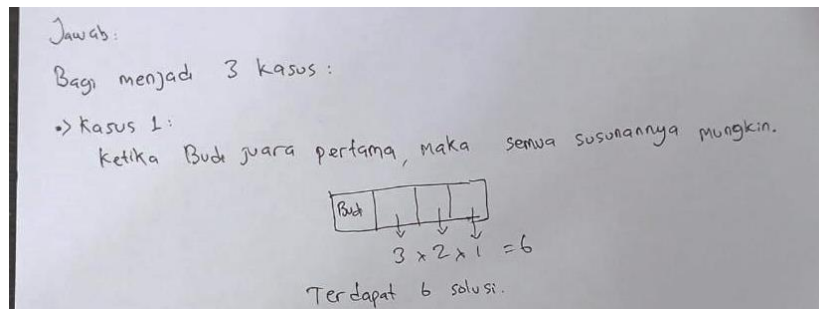 Jawab:
Bagi menjadi 3 kasus:
•> Kasus 1:
Ketika Budi juara pertama, maka semua susunannya mungkin.
Budi
3 x 2 x 1 = 6
Terdapat 6 solusi.